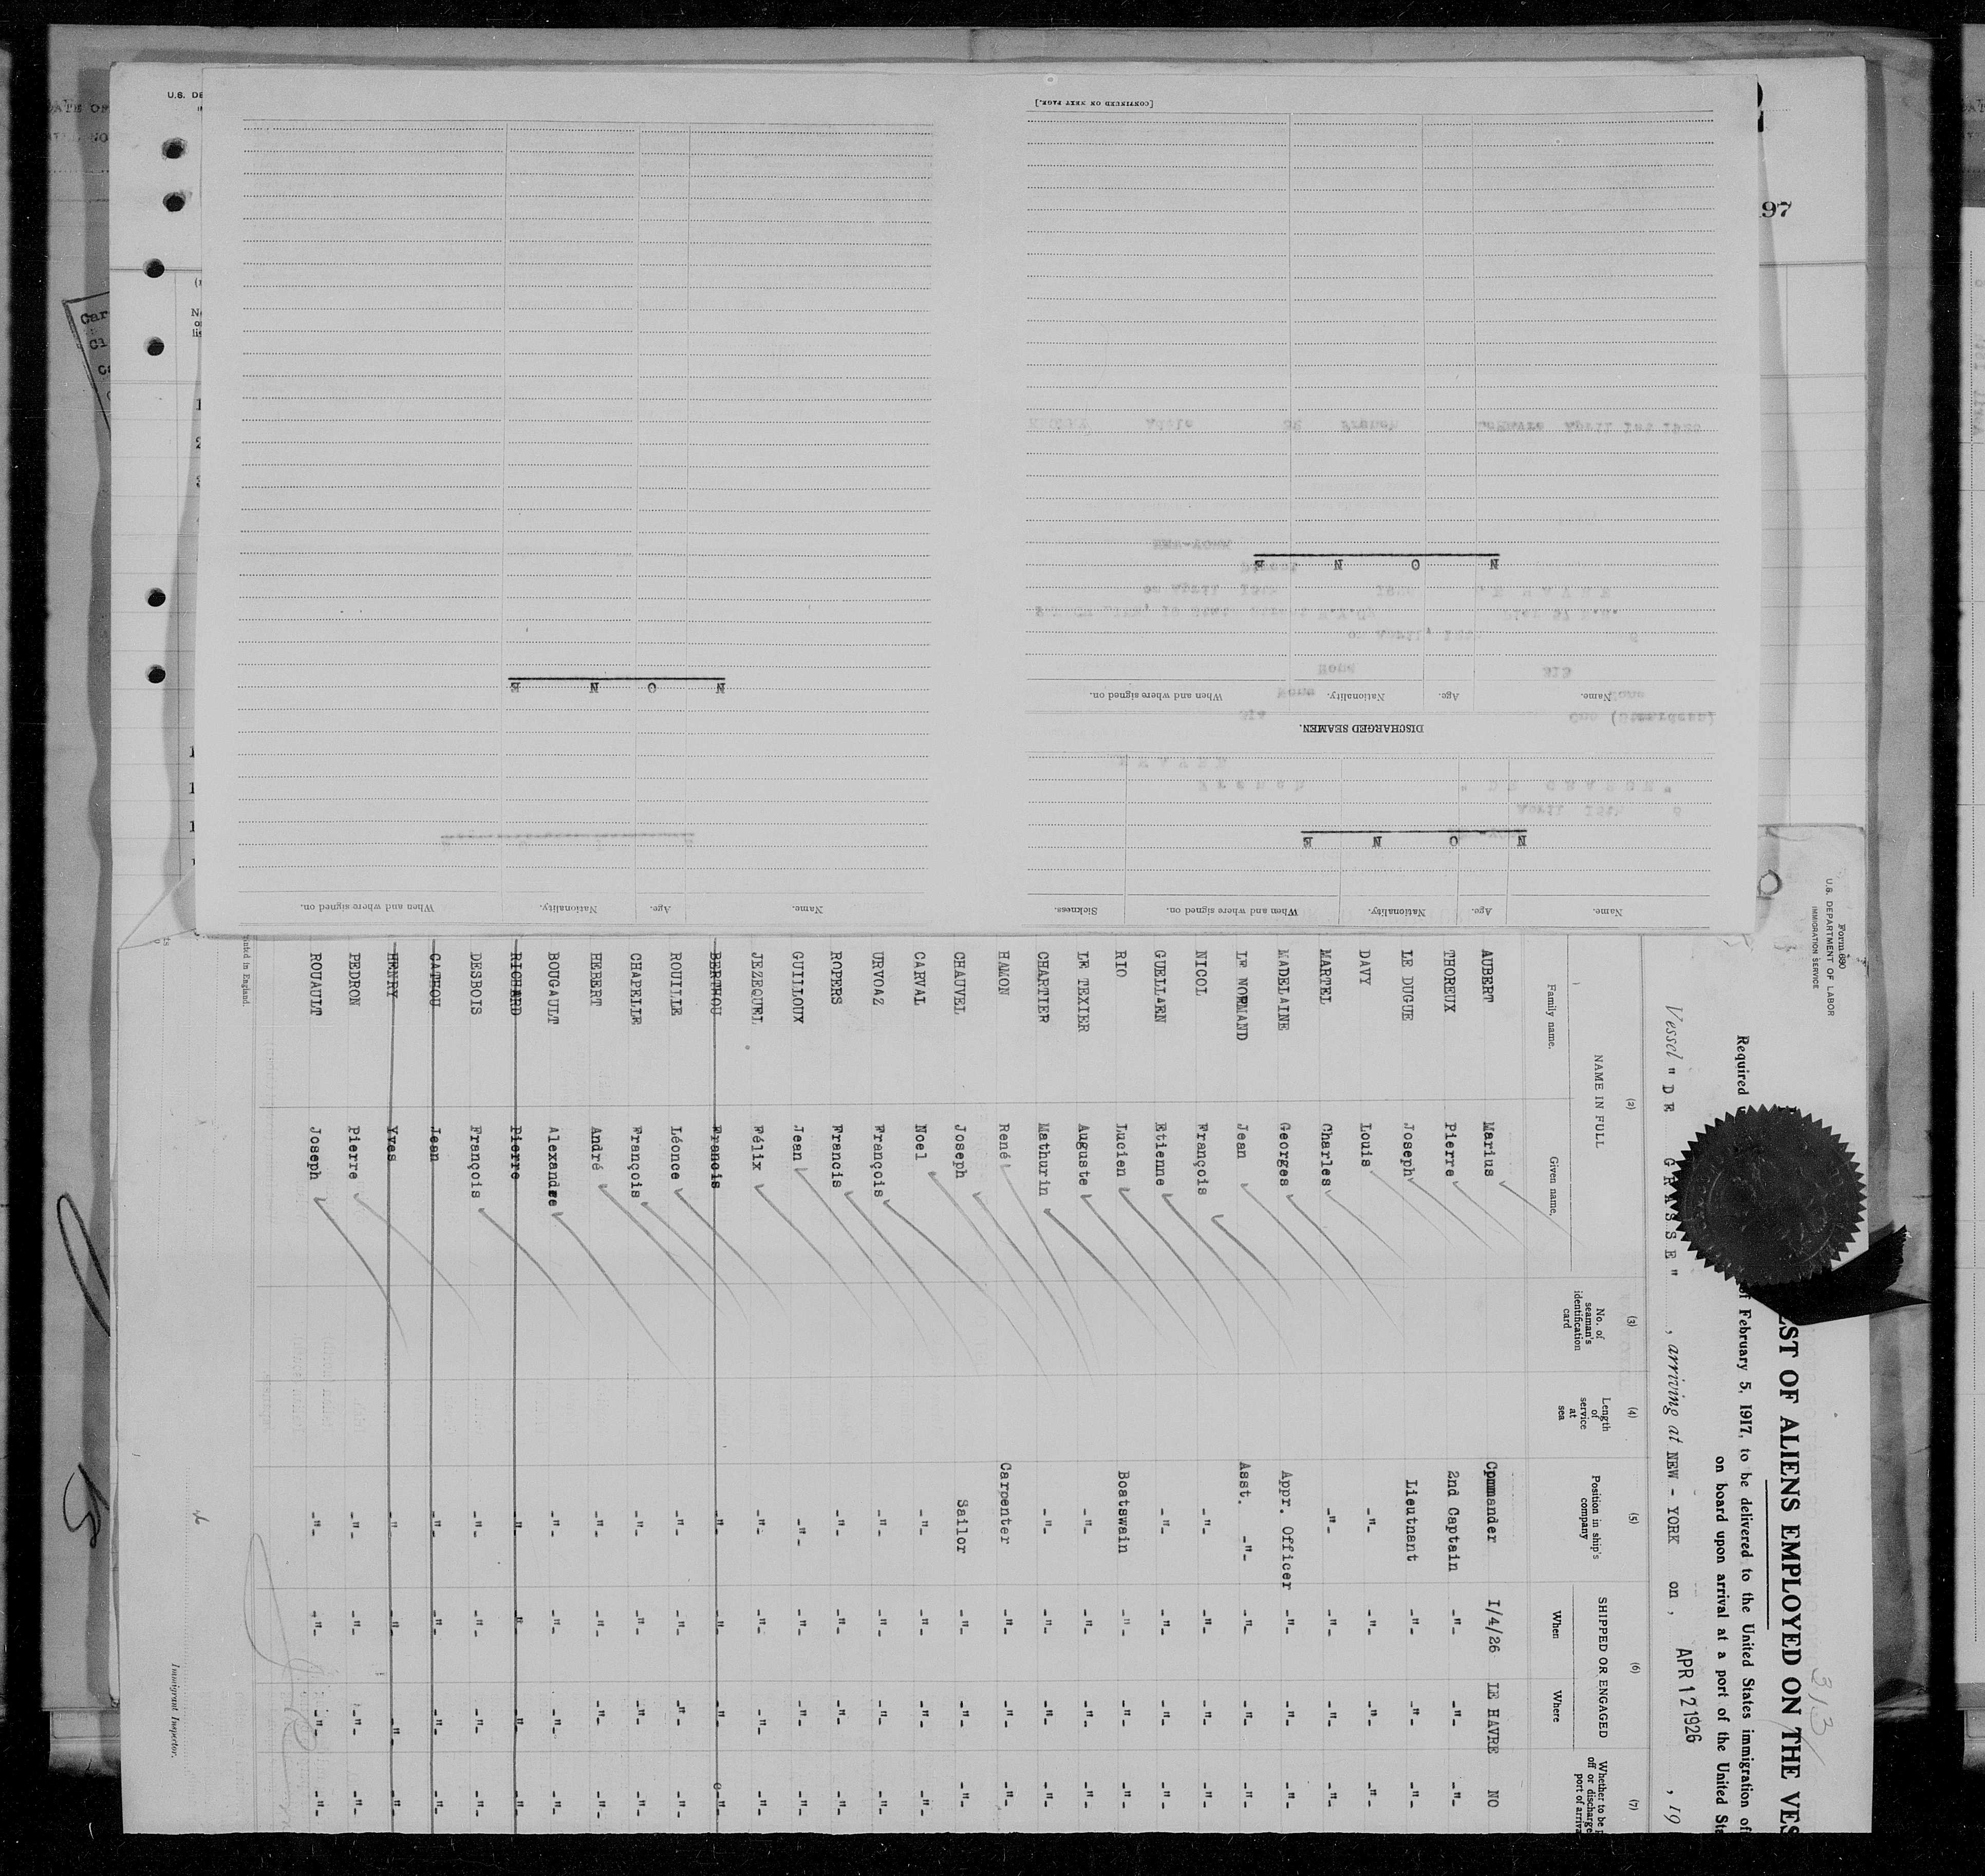 [CONTINUED ON NEXT PAGE.]
N O N E
When and where signed on. Nationality. Age. Name.
DISCHARGED SEAMEN.
N O N E
Sickness. When and where signed on. Nationality. Age. Name.
N O N E
When and where signed on. Nationality. Age. Name.
U.S. DE
97
Form 680
U.S. DEPARTMENT OF LABOR
IMMIGRATION SERVICE
313
ST OF ALIENS EMPLOYED ON THE VES
Required of February 5, 1917, to be delivered to the United States immigration of
on board upon arrival at a port of the United Sta
Vessel " D E G R A S S E " , arriving at NEW - YORK on , APR 12 1926 , 19
(2) (3) (4) (5) (6) (7)
NAME IN FULL No. of seaman's identification card Length of service at sea Position in ship's company SHIPPED OR ENGAGED Whether to be off or discharge port of arriva
Family name. Given name. When Where
AUBERT Marius Commander 1/4/26 LE HAVRE NO
THOREUX Pierre 2nd Captain -"- -"- -"-
LE DUGUE Joseph Lieutnant -"- -"- -"-
DAVY Louis -"- -"- -"- -"-
MARTEL Charles -"- -"- -"- -"-
MADELAINE Georges Appr. Officer -"- -"- -"-
LE NORMAND Jean Asst. -"- -"- -"- -"-
NICOL François -"- -"- -"- -"-
GUELLAEN Etienne -"- -"- -"- -"-
RIO Lucien Boatswain -"- -"- -"-
LE TEXIER Auguste -"- -"- -"- -"-
CHARTIER Mathurin -"- -"- -"- -"-
HAMON René Carpenter -"- -"- -"-
CHAUVEL Joseph Sailor -"- -"- -"-
CARVAL Noel -"- -"- -"- -"-
URVOAZ François -"- -"- -"- -"-
ROPERS Francis -"- -"- -"- -"-
GUILLOUX Jean -"- -"- -"- -"-
JEZEQUEL Félix -"- -"- -"- -"-
BERTHOU Francis -"- -"- -"- -"-
ROUILLE Léonce -"- -"- -"- -"-
CHAPELLE François -"- -"- -"- -"-
HEBERT André -"- -"- -"- -"-
BOUGAULT Alexandre -"- -"- -"- -"-
RICHARD Pierre -"- -"- -"- -"-
DESBOIS François -"- -"- -"- -"-
CATHOU Jean -"- -"- -"- -"-
HENRY Yves -"- -"- -"- -"-
PEDRON Pierre -"- -"- -"- -"-
ROUAULT Joseph -"- -"- -"- -"-
nted in England.
Immigrant Inspector.